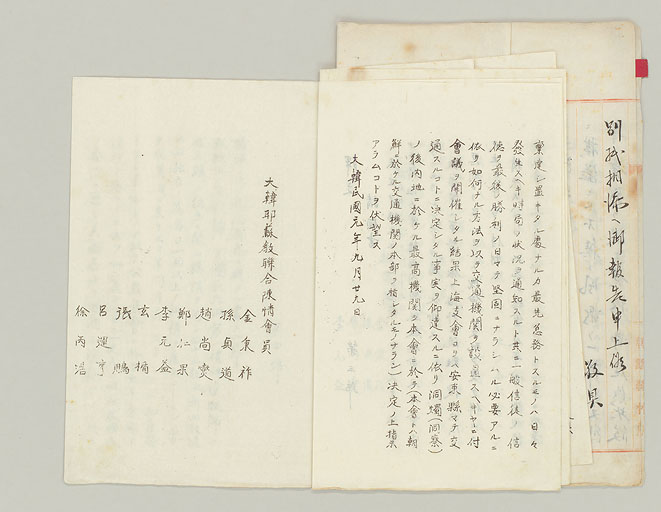 別紙相添ヘ御報告申上候
敬具
稟達シ置キタル處ナルカ最先急務トスルモノハ日々
發生スル時局ノ狀況ヲ通知スルト共ニ一般信徒ノ信
德ヲ最後ノ勝利ノ日マテ堅固ニナラシムル必要アルニ
依リ如何ナル方法ヲ以テ交通機關ヲ設置スヘキヤニ付
會議ヲ開催シタル結果上海支會ヨリ安東縣マテ交
通スルコトニ決定シタル事実ヲ仰達スルニ依リ洞燭(洞察)
ノ後內地ニ於ケル最高機關ヲ本會ニ於テ(本會トハ朝
鮮ニ於ケル交通機關ノ本部ヲ指シタルモノナラン)決定ノ上指示
アラムコトヲ伏望ス
大韓民國元年九月廿九日
大韓耶蘇敎聯合陳情會員
金秉祚
孫貞道
趙尚爕
鄭仁果
李元益
玄楯
張鵬
呂運亨
徐丙浩